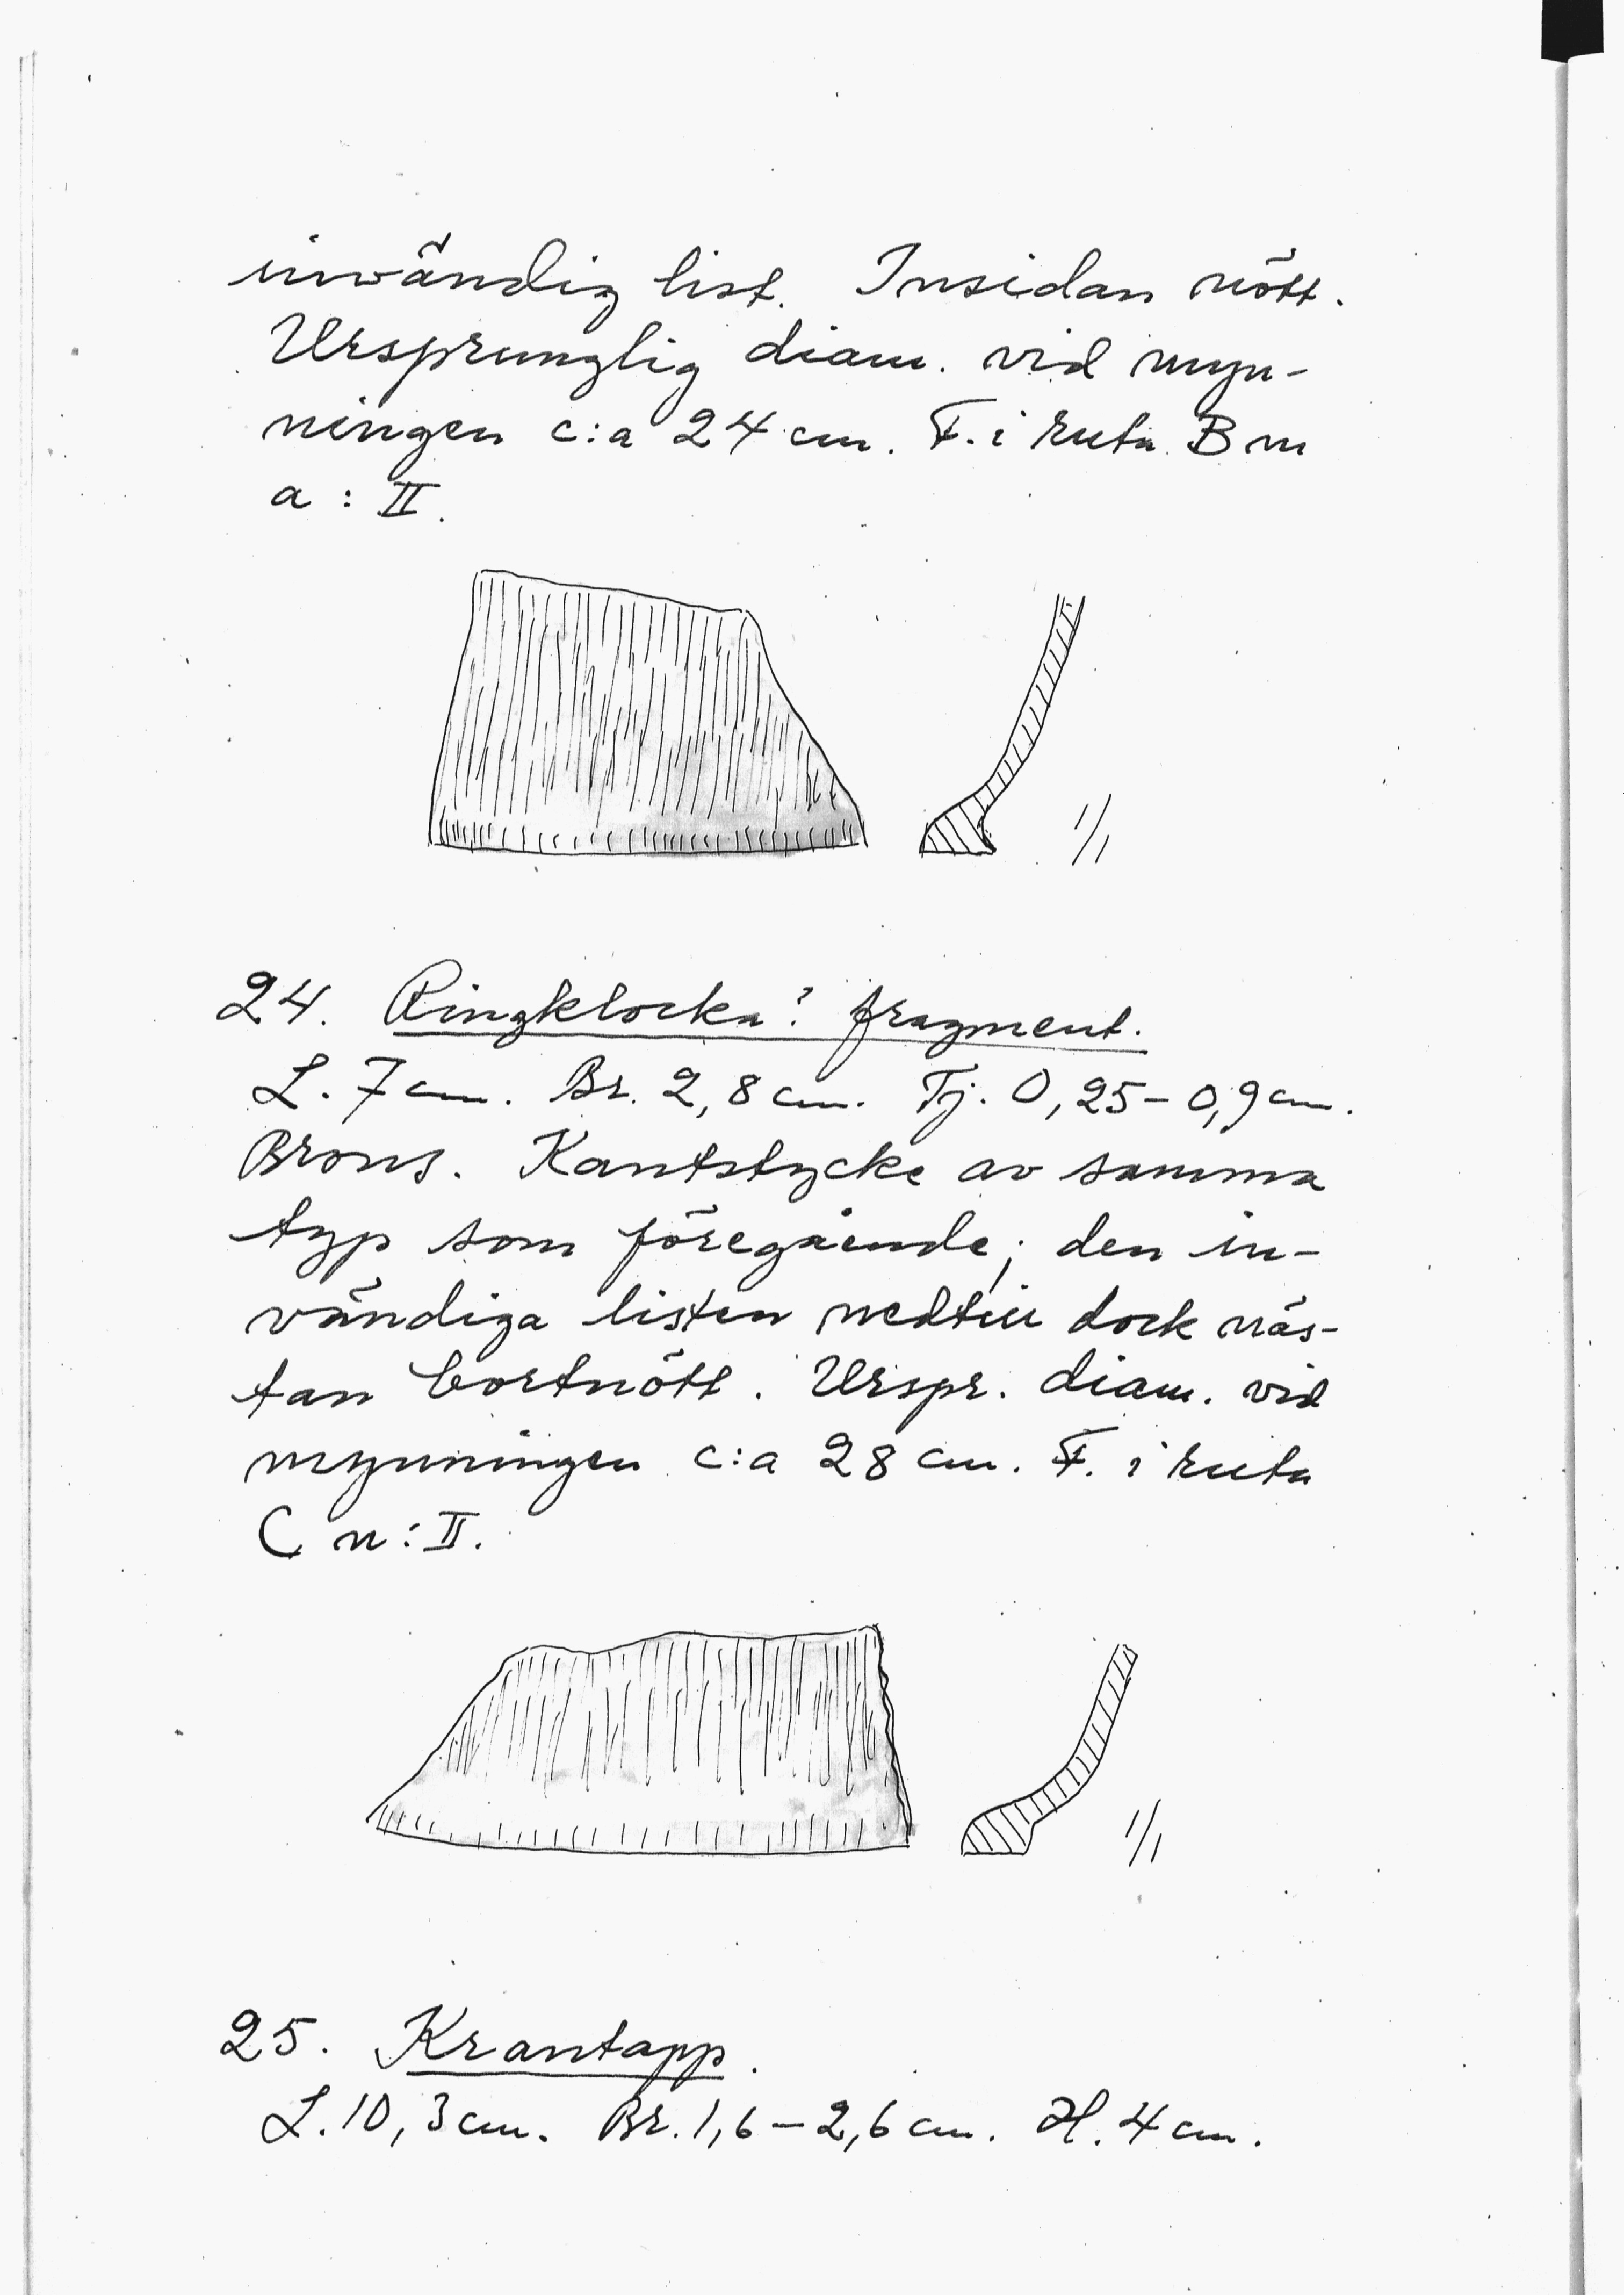 invändig list. Insidan nött.
Ursprunglig diam. vid myn-
ningen c:a 24 cm. F. i ruta B m
a : II.
1/1
24. Ringklocka? fragment.
L. 7 cm. Br. 2,8 cm. Tj. 0,25 – 0,9 cm.
Brons. Kantstycke av samma
typ som föregående; den in-
vändiga listen nedtill dock näs-
tan bortnött. Urspr. diam. vid
mynningen c:a 28 cm. F. i ruta
C n : II.
1/1
25. Krantapp.
L. 10,3 cm. Br. 1,6 – 2,6 cm. H. 4 cm.